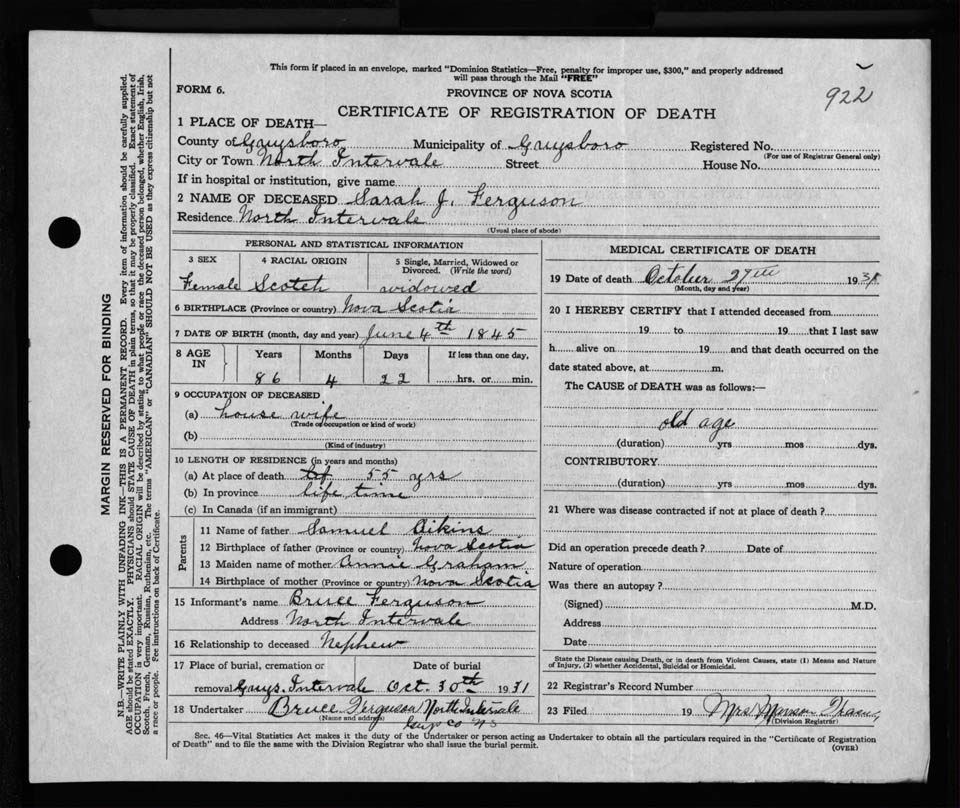 This form if placed in an envelope, marked "Dominion Statistics—Free, penalty for improper use, $300," and properly addressed
will pass through the Mail "FREE"
922
FORM 6.
PROVINCE OF NOVA SCOTIA
CERTIFICATE OF REGISTRATION OF DEATH
1 PLACE OF DEATH—
County of Guysboro Municipality of Guysboro Registered No.
(For use of Registrar General only)
City or Town North Intervale Street House No.
If in hospital or institution, give name
2 NAME OF DECEASED Sarah J. Ferguson
Residence North Intervale
(Usual place of abode)
PERSONAL AND STATISTICAL INFORMATION
3 SEX 4 RACIAL ORIGIN 5 Single, Married, Widowed or
Divorced. (Write the word)
Female Scotch widowed
6 BIRTHPLACE (Province or country) Nova Scotia
7 DATE OF BIRTH (month, day and year) June 4th 1845
8 AGE IN Years Months Days If less than one day,
86 4 22 hrs. or min.
9 OCCUPATION OF DECEASED
(a) house wife
(Trade or occupation or kind of work)
(b)
(Kind of industry)
10 LENGTH OF RESIDENCE (in years and months)
(a) At place of death 55 yrs
(b) In province life time
(c) In Canada (if an immigrant)
Parents
11 Name of father Samuel Aikins
12 Birthplace of father (Province or country) Nova Scotia
13 Maiden name of mother Annie Graham
14 Birthplace of mother (Province or country) Nova Scotia
15 Informant's name Bruce Ferguson
Address North Intervale
16 Relationship to deceased Nephew
17 Place of burial, cremation or Date of burial
removal Guys. Intervale Oct. 30th 1931
18 Undertaker Bruce Ferguson North Intervale
(Name and address)
Guy Co NS
MEDICAL CERTIFICATE OF DEATH
19 Date of death October 27th 1931
(Month, day and year)
20 I HEREBY CERTIFY that I attended deceased from
19 to 19 that I last saw
h alive on 19 and that death occurred on the
date stated above, at m.
The CAUSE of DEATH was as follows:—
old age
(duration) yrs mos dys.
CONTRIBUTORY
(duration) yrs mos dys.
21 Where was disease contracted if not at place of death?
Did an operation precede death? Date of
Nature of operation
Was there an autopsy?
(Signed) M.D.
Address
Date
State the Disease causing Death, or in death from Violent Causes, state (1) Means and Nature
of Injury, (2) whether Accidental, Suicidal or Homicidal.
22 Registrar's Record Number
23 Filed 19 Mrs
(Division Registrar)
Sec. 46—Vital Statistics Act makes it the duty of the Undertaker or person acting as Undertaker to obtain all the particulars required in the "Certificate of Registration
of Death" and to file the same with the Division Registrar who shall issue the burial permit.
(OVER)
MARGIN RESERVED FOR BINDING
N.B.—WRITE PLAINLY WITH UNFADING INK—THIS IS A PERMANENT RECORD. Every item of information should be carefully supplied.
AGE should be stated EXACTLY. PHYSICIANS should STATE CAUSE OF DEATH in plain terms, so that it may be properly classified. Exact statement of
OCCUPATION is very important. RACIAL ORIGIN will be described by stating to what people or race the deceased person belonged, whether English, Irish,
Scotch, French, German, Russian, Ruthenian, etc. The terms "AMERICAN" or "CANADIAN" SHOULD NOT BE USED as they express citizenship but not
a race or people. Fee instructions on back of Certificate.